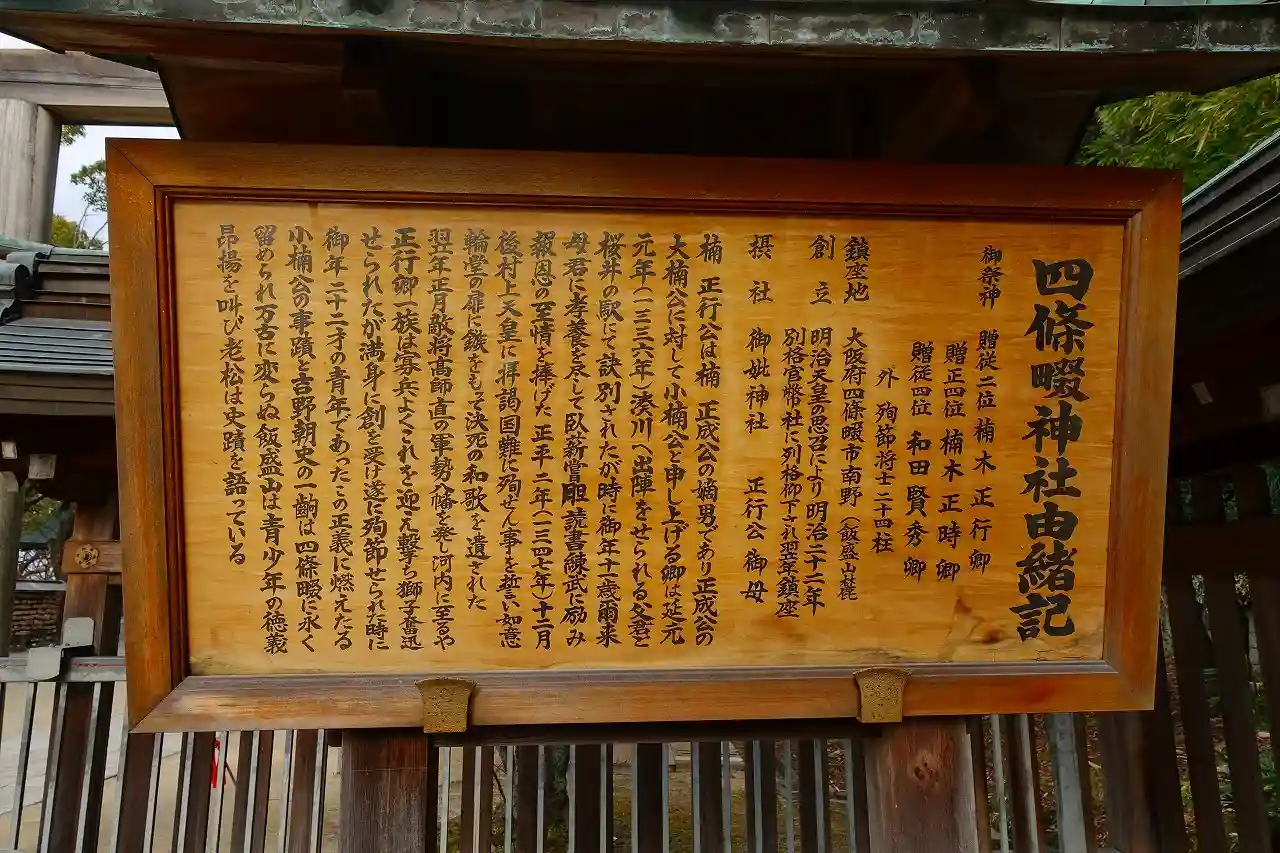 四條畷神社由緒記
御祭神 贈従二位 楠木 正行 卿
贈正四位 楠木 正時 卿
贈従四位 和田 賢秀 卿
外 殉節将士 二十四柱
鎮座地 大阪府四條畷市南野（飯盛山麓）
創立 明治天皇の思召により明治二十二年
別格官幣社に列格仰下され翌年鎮座
摂社 御妣神社 正行公御母
楠 正行公は楠 正成公の嫡男であり正成公の
大楠公に対して小楠公と申し上げる卿は延元
元年（一三三六年）湊川へ出陣をせられる父君と
桜井の駅にて訣別されたが時に御年十一歳爾来
母君に孝養を尽して臥薪嘗胆読書錬武に励み
報恩の至情を捧げた 正平二年（一三四七年）十二月
後村上天皇に拝謁国難に殉せん事を誓い如意
輪堂の扉に鏃をもって決死の和歌を遺された
翌年正月敵将高師直の軍勢八幡を発し河内に至るや
正行卿一族は寡兵よくこれを迎え撃ち獅子奮迅
せられたが満身に創を受け遂に殉節せられた時に
御年二十二才の青年であったこの正義に燃えたる
小楠公の事蹟と吉野朝史の一齣は四條畷に永く
留められ万古に変らぬ飯盛山は青少年の徳義
昂揚を叫び老松は史蹟を語っている